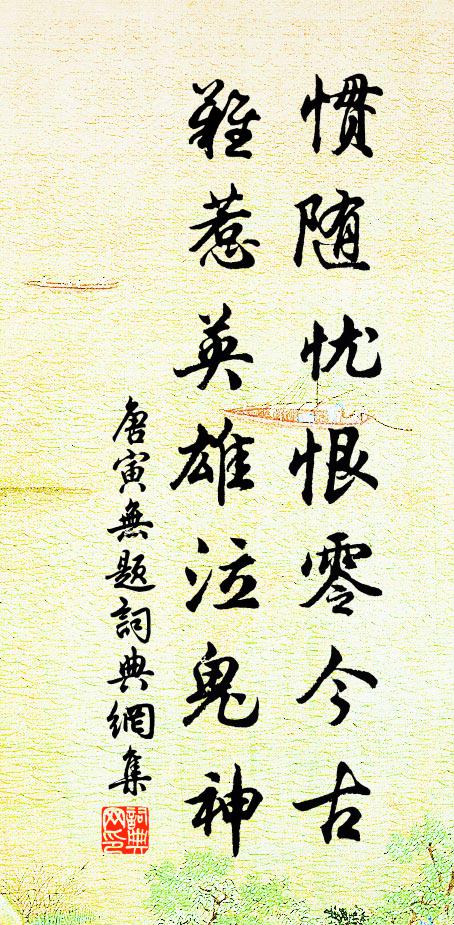 惯随忧恨零今古
难惹英雄泣鬼神
唐寅無题詞典網集
詞典網印